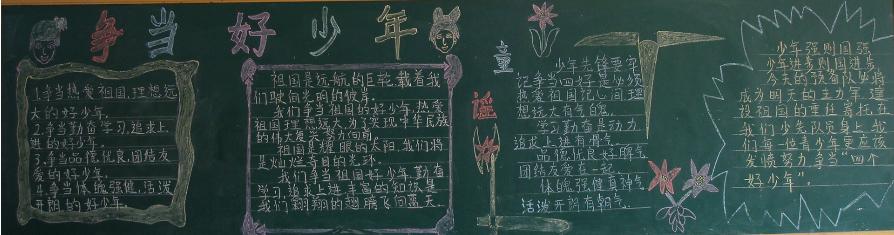 争当好少年
1.争当热爱祖国、理想远
大的好少年。
2.争当勤奋学习、追求上
进的好少年。
3.争当品德优良、团结友
爱的好少年。
4.争当体魄强健、活泼
开朗的好少年。
祖国是远航的巨轮,载着我
们驶向光明的彼岸。
我们争当祖国的好少年,热爱
祖国理想远大,为了实现中华民族
的伟大复兴努力向前。
祖国是耀眼的太阳,我们将
是灿烂夺目的光环。
我们争当祖国好少年,勤奋
学习,追求上进,丰富的知识是
我们翱翔的翅膀飞向蓝天。
童谣
少年先锋要牢
记争当四好是必须
热爱祖国记心间理
想远大有气魄。
学习勤奋是动力
追求上进有骨气
品德优良好脾气
团结友爱在一起。
体魄强健有神气
活泼开朗有朝气。
少年强则国强
少年进步则国进步
今天的预备队必将
成为明天的主力军,建
设祖国的重任寄托在
我们少先队员身上,我
们每一位青少年更应该
发愤努力争当“四个
好少年”。